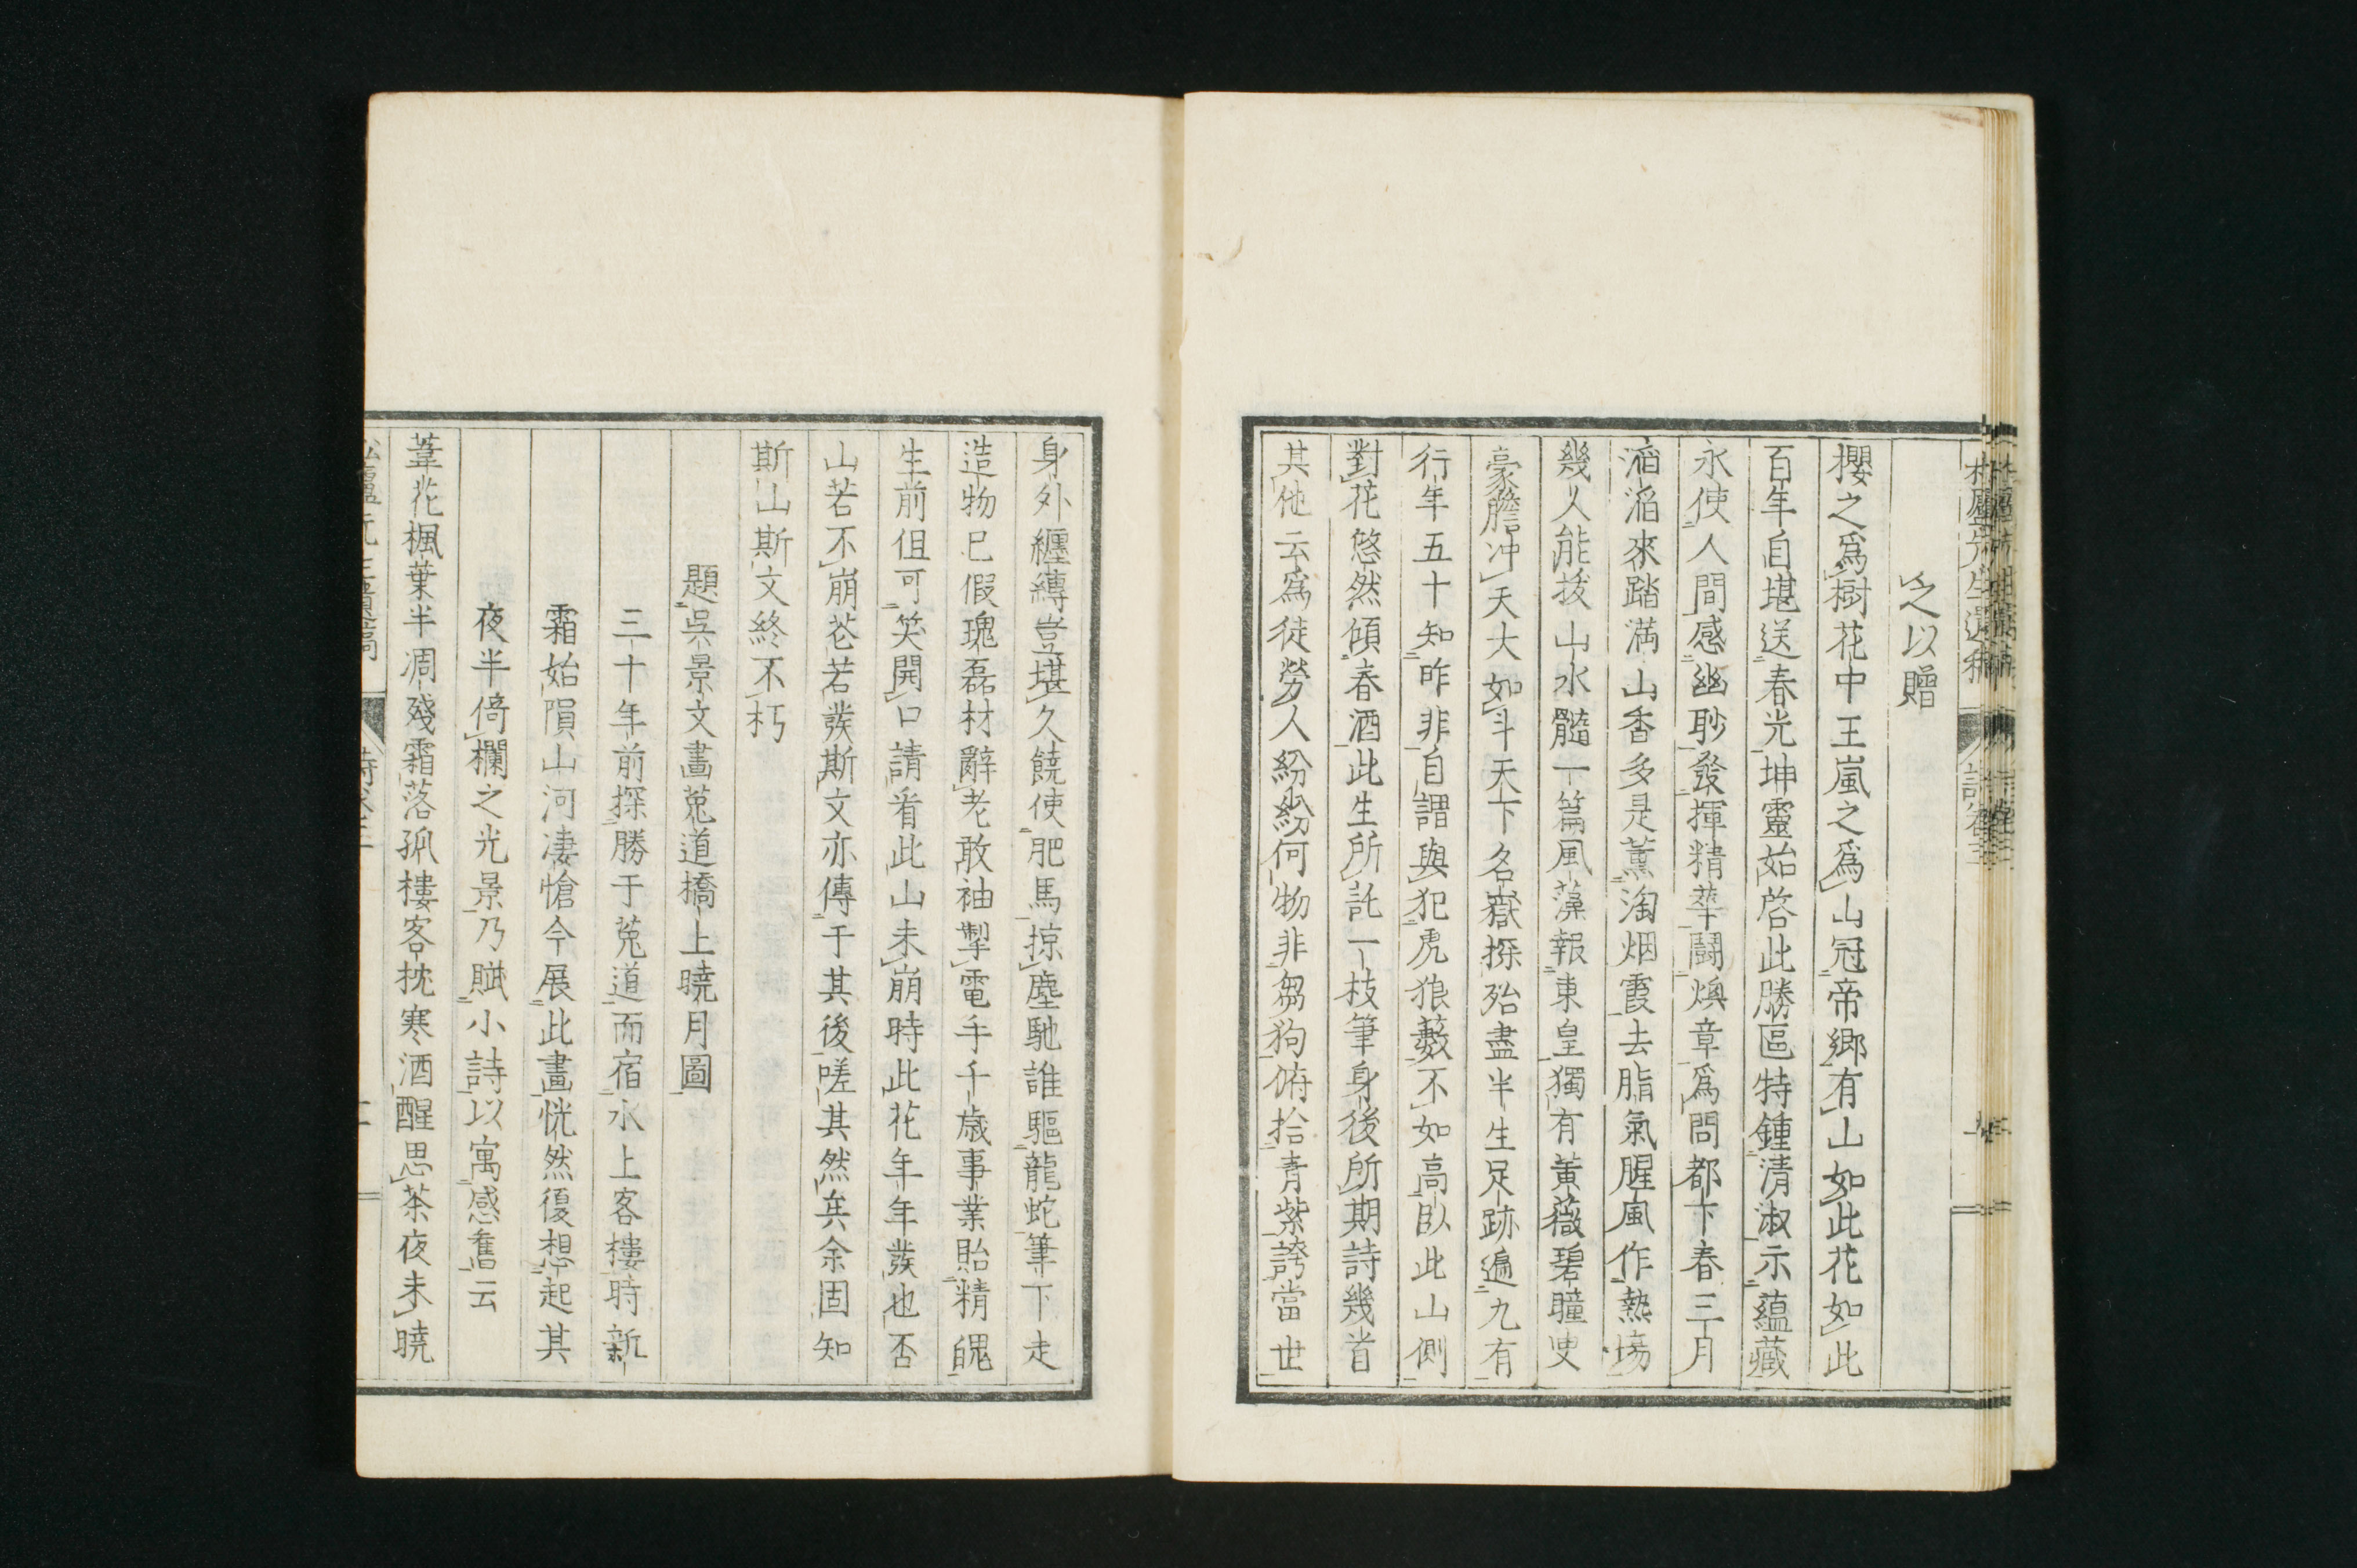 之以贈
櫻之爲樹花中王嵐之爲山冠帝郷有山如此花如此
百年自堪送春光坤靈始啓此勝區特鍾清淑示蘊藏
永使人間感幽耿發揮精華闘煥章爲問都下春三月
滔滔來踏満山香多是薫淘烟霞去脂氣腥風作熱塲
幾人能拔山水髓一篇風藻報東皇獨有黄薇碧瞳叟
豪膽冲天大如斗天下名嶽探殆盡半生足跡遍九有
行年五十知昨非自謂與犯虎狼藪不如高臥此山側
對花悠然傾春酒此生所託一枝筆身後所期詩幾首
其他云爲徒勞人紛紛何物非芻狗俯拾青紫誇當世
身外纏縛豈堪久饒使肥馬掠塵馳誰驅龍蛇筆下走
造物已假瑰磊材辭老敢袖掣電手千歳事業貽精魄
生前但可笑開口請看此山未崩時此花年年發也否
山若不崩花若發斯文亦傳于其後嗟其然矣余固知
斯山斯文終不朽
題呉景文畫菟道橋上曉月圖
三十年前探勝于菟道而宿水上客樓時新
霜始隕山河凄愴今展此畫恍然復想起其
夜半倚欄之光景乃賦小詩以寓感舊云
葦花楓葉半凋殘霜落孤樓客枕寒酒醒思茶夜未曉